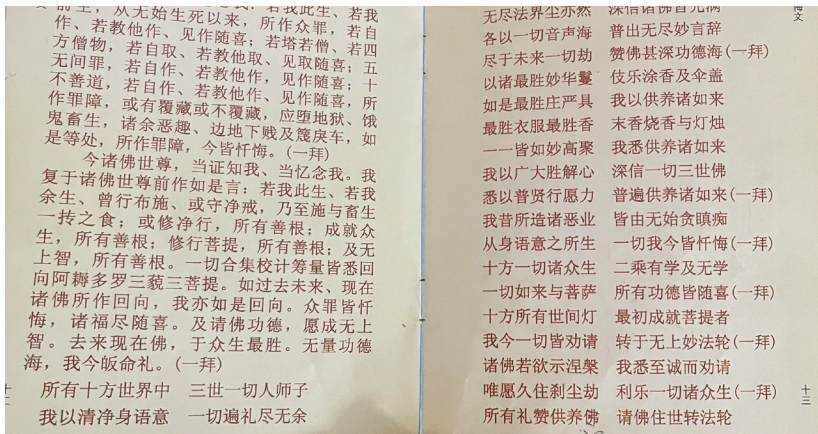 前，从无始生死以来，所作众罪，若自
作、若教他作、见作随喜；若塔若僧、若四
方僧物，若自取、若教他取、见取随喜；五
无间罪，若自作、若教他作，见作随喜；十
不善道，若自作、若教他作、见作随喜，所
作罪障，或有覆藏或不覆藏，应堕地狱、饿
鬼畜生，诸余恶趣、边地下贱及篾戾车，如
是等处，所作罪障，今皆忏悔。(一拜)
今诸佛世尊，当证知我、当忆念我。我
复于诸佛世尊前作如是言：若我此生、若我
余生、曾行布施、或守净戒，乃至施与畜生
一抟之食；或修净行，所有善根；成就众
生，所有善根；修行菩提，所有善根；及无
上智，所有善根。一切合集校计筹量皆悉回
向阿耨多罗三藐三菩提。如过去未来、现在
诸佛所作回向，我亦如是回向。众罪皆忏
悔，诸福尽随喜。及请佛功德，愿成无上
智。去来现在佛，于众生最胜。无量功德
海，我今皈命礼。(一拜)
所有十方世界中　三世一切人师子
我以清净身语意　一切遍礼尽无余
无尽法界尘亦然　深信诸佛皆充满
各以一切音声海　普出无尽妙言辞
尽于未来一切劫　赞佛甚深功德海(一拜)
以诸最胜妙华鬘　伎乐涂香及伞盖
如是最胜庄严具　我以供养诸如来
最胜衣服最胜香　末香烧香与灯烛
一一皆如妙高聚　我悉供养诸如来
我以广大胜解心　深信一切三世佛
悉以普贤行愿力　普遍供养诸如来(一拜)
我昔所造诸恶业　皆由无始贪瞋痴
从身语意之所生　一切我今皆忏悔(一拜)
十方一切诸众生　二乘有学及无学
一切如来与菩萨　所有功德皆随喜(一拜)
十方所有世间灯　最初成就菩提者
我今一切皆劝请　转于无上妙法轮(一拜)
诸佛若欲示涅槃　我悉至诚而劝请
唯愿久住刹尘劫　利乐一切诸众生(一拜)
所有礼赞供养佛　请佛住世转法轮
文
十三